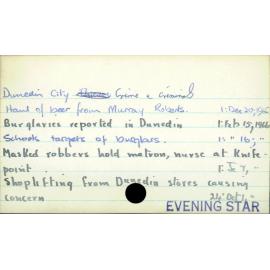 Dunedin City Crime & Criminals
Haul of beer from Murray Roberts. 1: Dec 20,
Burglaries reported in Dunedin 1: Feb 15, 1966
Schools targets of burglars. 1: " 16, "
Masked robbers hold matron, nurse at knife-
point.
Shoplifting from Dunedin stores causing
concern
EVENING STAR